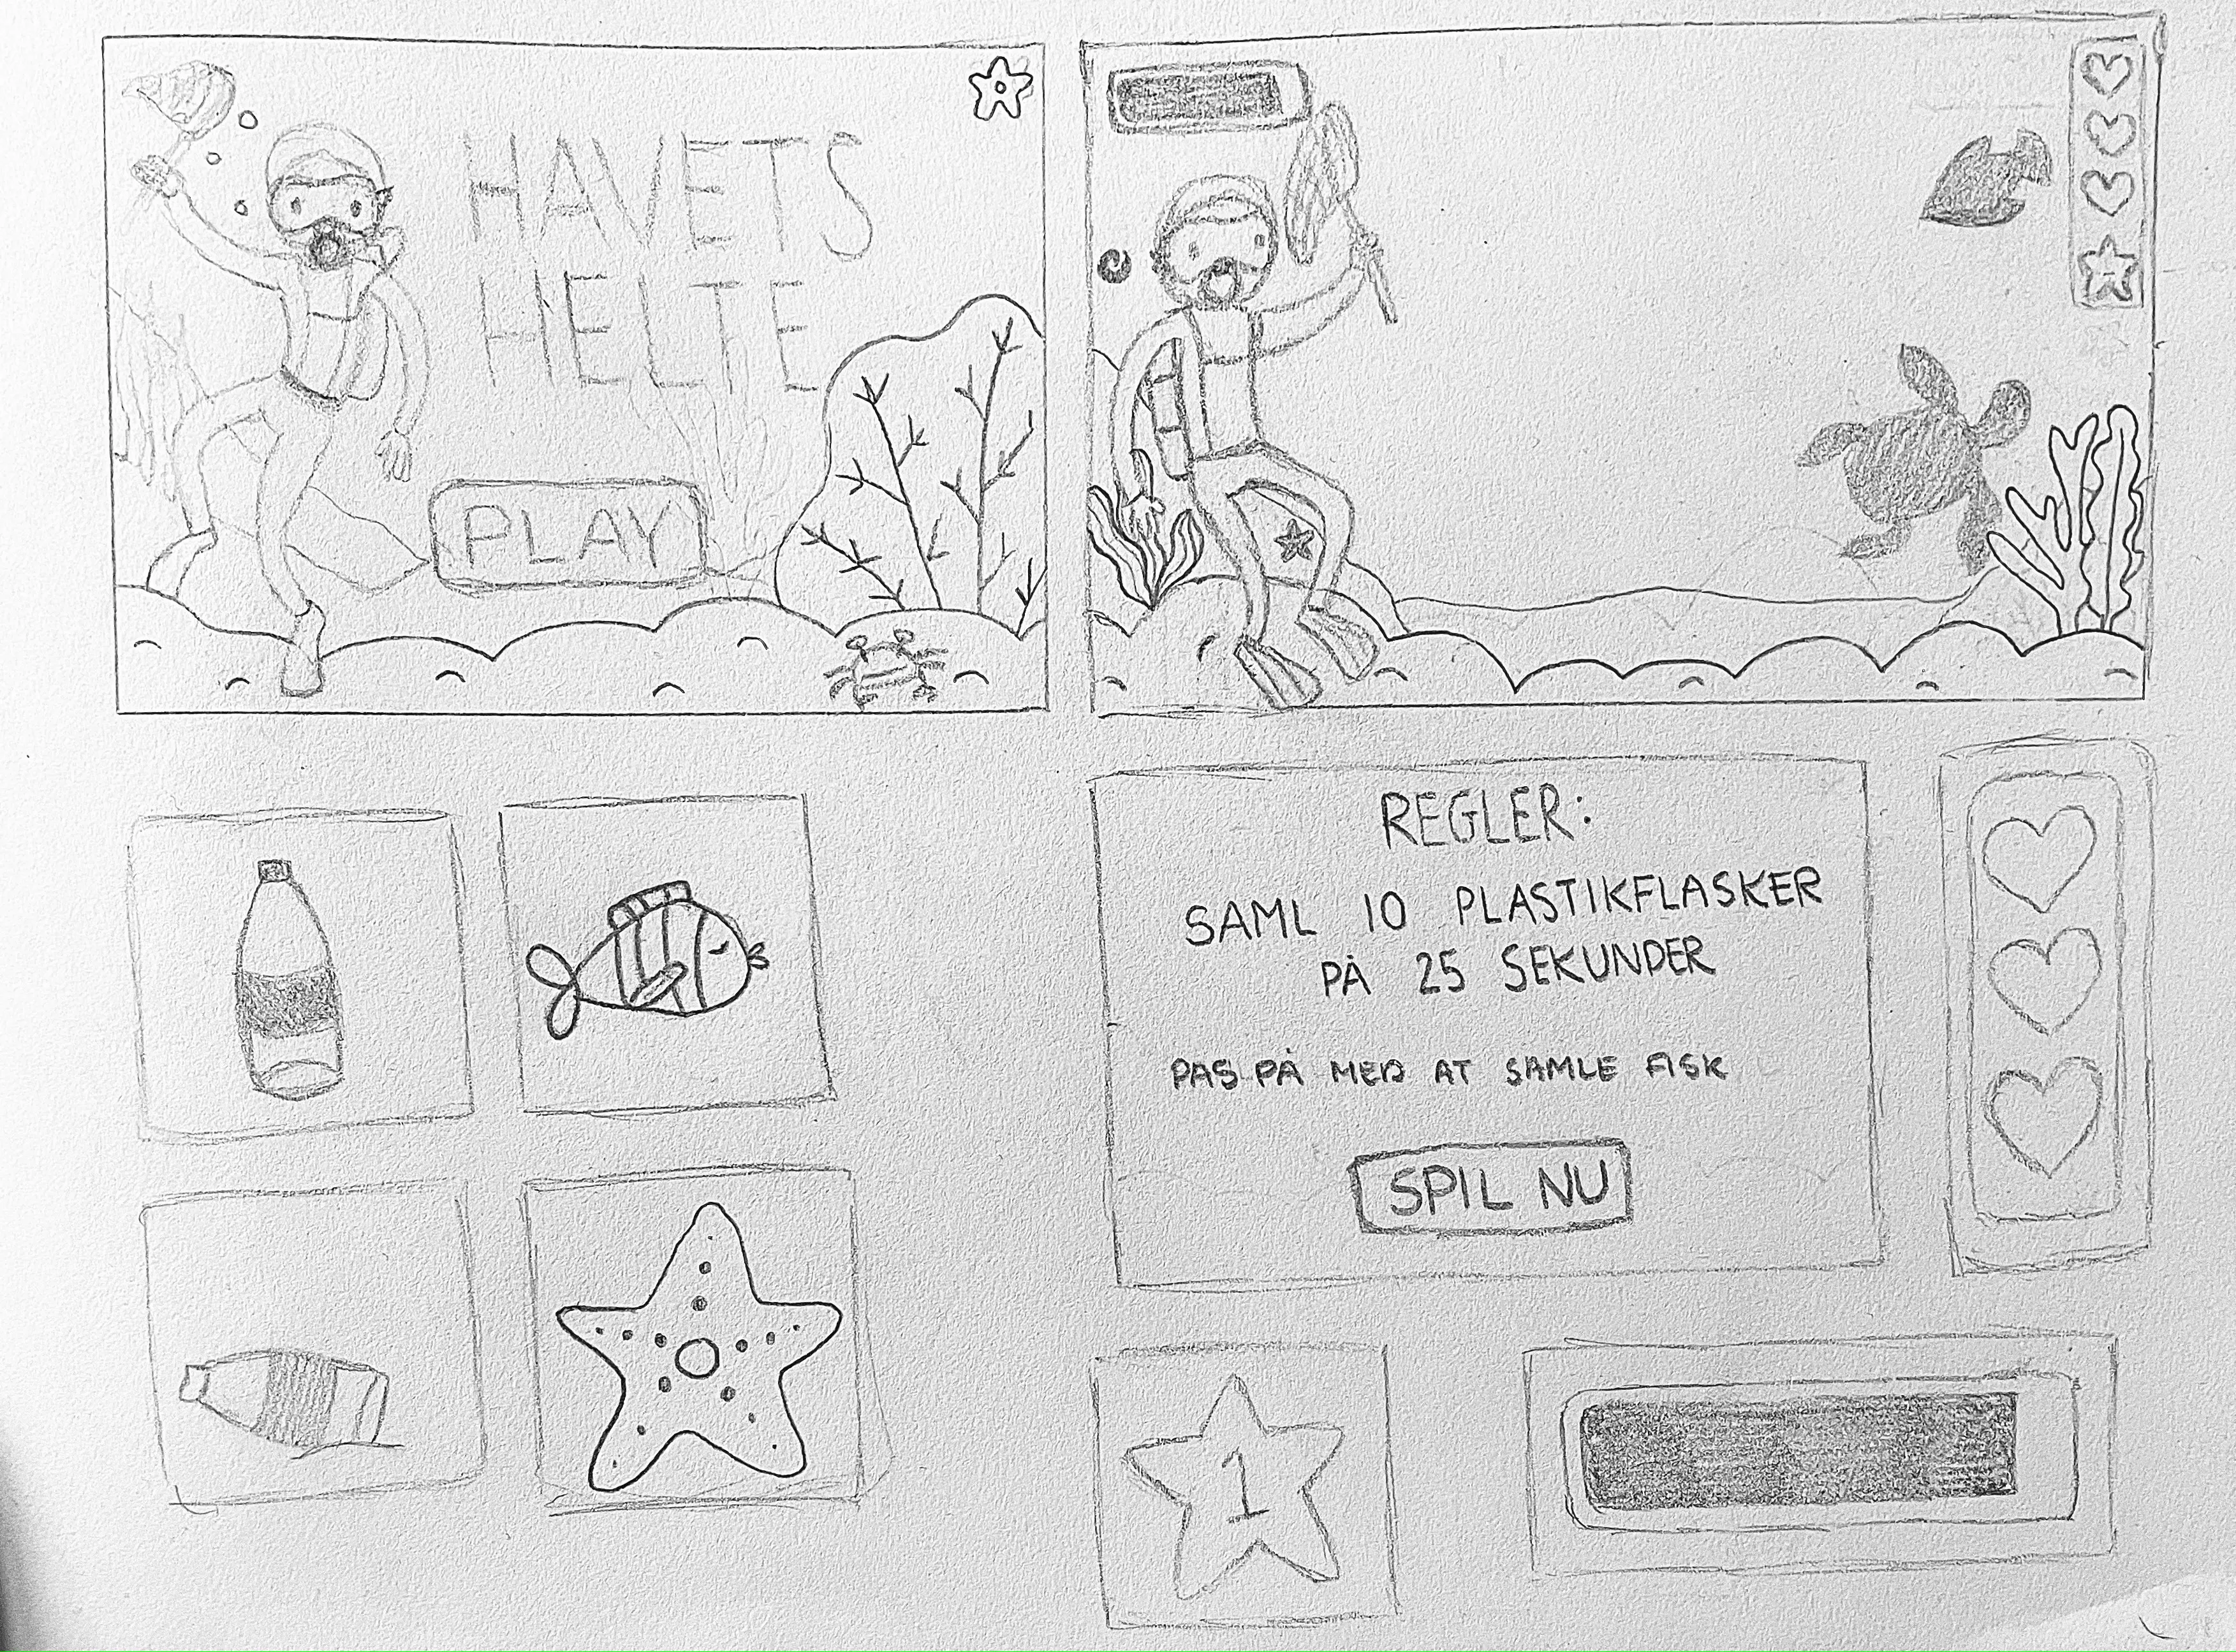 HAVETS
HELTE
PLAY
REGLER:
SAML 10 PLASTIKFLASKER
PÅ 25 SEKUNDER
PAS PÅ MED AT SAMLE FISK
SPIL NU
1